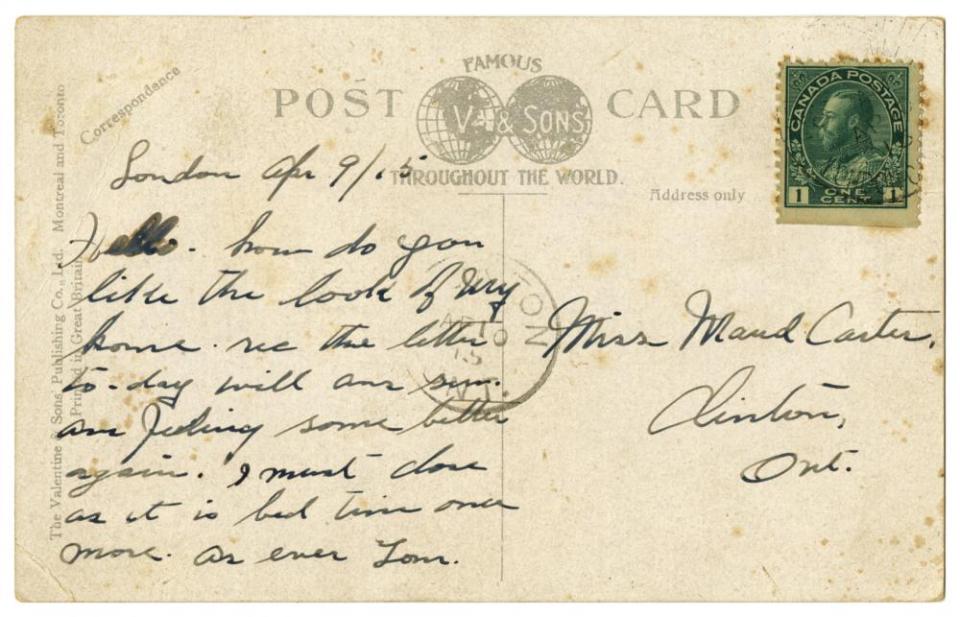 FAMOUS
POST CARD
V. & SONS
THROUGHOUT THE WORLD.
Correspondance
Address only
The Valentine & Sons' Publishing Co., Ltd. Montreal and Toronto
Printed in Great Britain
CANADA POSTAGE
1 ONE CENT 1
London Apr 9/15
Hello. how do you
like the look of my
home. rec the letter
to-day will ans sun.
am feeling some better
again. I must close
as it is bed time once
more. as ever Tom.
Miss Maud Carter,
Clinton,
Ont.
CLINTON
AP 10
15
ONT